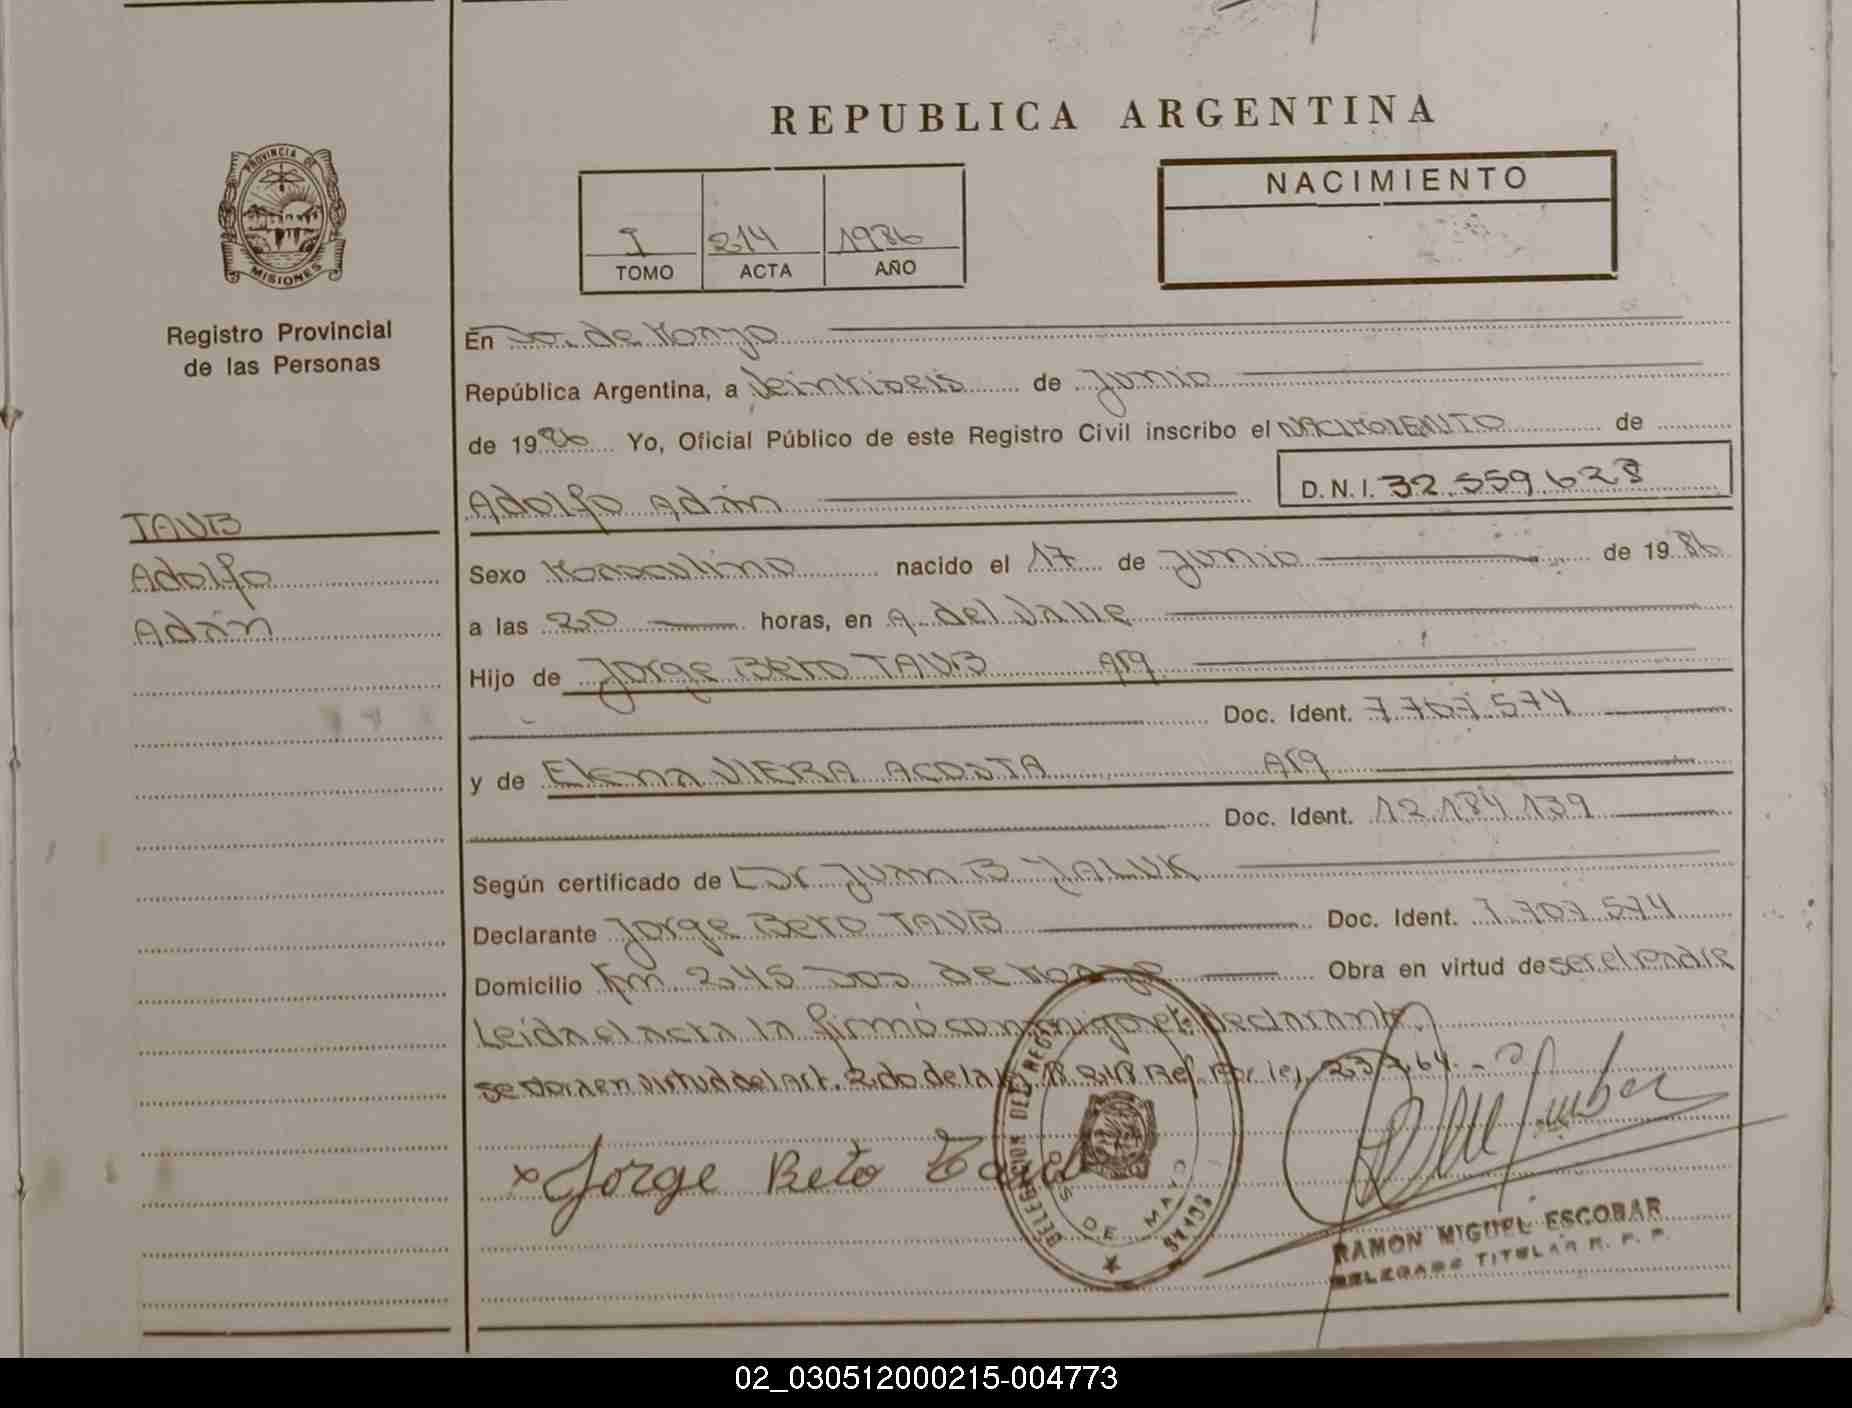 REPUBLICA ARGENTINA
PROVINCIA DE
MISIONES
Registro Provincial
de las Personas
I 214 1986
TOMO ACTA AÑO
NACIMIENTO
En Do. de Mayo
República Argentina, a Veintiseis de Junio
de 1986 Yo, Oficial Público de este Registro Civil inscribo el NACIMIENTO de
Adolfo Adán D.N.I. 32.559.628
TAUB
Adolfo
Adán
Sexo Masculino nacido el 17 de Junio de 1986
a las 20 horas, en A. del Valle
Hijo de Jorge Beto TAUB Arg
Doc. Ident. 7.707.574
y de Elena VIERA ACOSTA Arg
Doc. Ident. 12.184.139
Según certificado de Dr Juan B YALUK
Declarante Jorge Beto TAUB Doc. Ident. 7.707.574
Domicilio Km 245 Dos de Mayo Obra en virtud de ser el padre
Leida el acta la firmó conmigo el declarante.
se otorga en virtud del Art. 2do de la Ref. Por ley 23.264.-
x Jorge Beto Taub
DELEGACION DEL REG
DOS DE MAYO
RAMON MIGUEL ESCOBAR
DELEGADO TITULAR R. P. P.
02_030512000215-004773